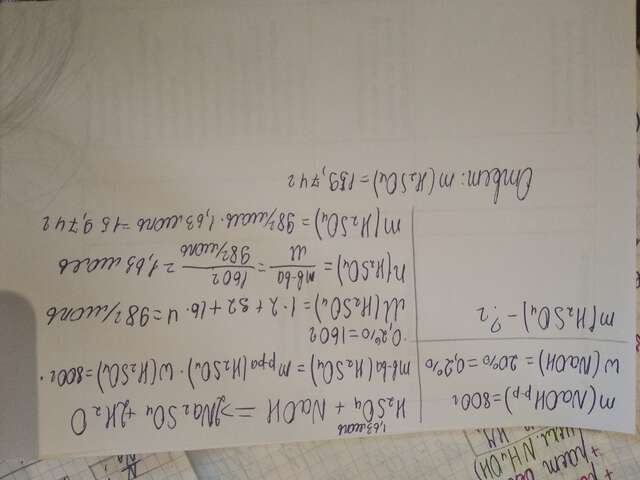 m(NaOH рр)=800г
W(NaOH)=20%=0,2%
m(H₂SO₄)-?г
1,63 моль
H₂SO₄ + NaOH => 2Na₂SO₄+2H₂O
mв-ва(H₂SO₄)=mр-ра(H₂SO₄)·W(H₂SO₄)=800г·
·0,2%=160г
M(H₂SO₄)=1·2+32+16·4=98г/моль
n(H₂SO₄)=mв-ва/M=160г/98г/моль=1,63моль
m(H₂SO₄)=98г/моль·1,63моль=159,74г
Ответ: m(H₂SO₄)=159,74г
NH₄OH)